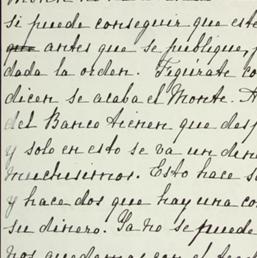 si puede conseguir que est
antes que se publique,
dada la orden. Figúrate co
dicen se acaba el Monte. A
del Banco tienen que des
y solo en esto se va un din
muchisimos. Esto hace s
y hace dos que hay una co
su dinero. Ya no se puede
nos quedamos con el